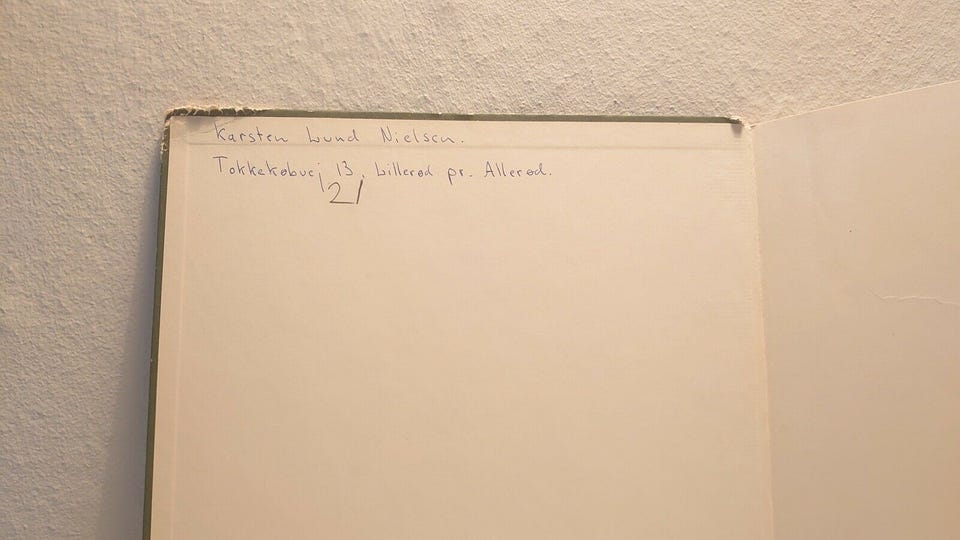 Karsten Lund Nielsen.
Tokkekøbvej 13, Lillerød pr. Allerød.
21